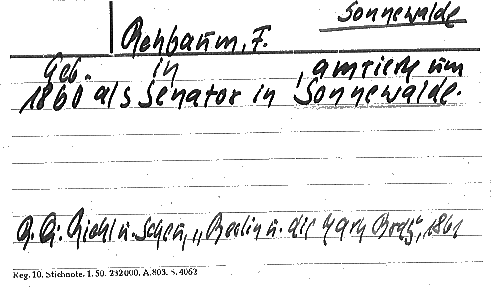 Sonnewalde
Rehbaum, F.
Geb. in , amtierte um
1860 als Senator in Sonnewalde.
Riehl u. Scheu, „Berlin u. die Mark Brdg“, 1861
Reg. 10. Stichnote. 1. 50. 232000. A.803. S. 4063